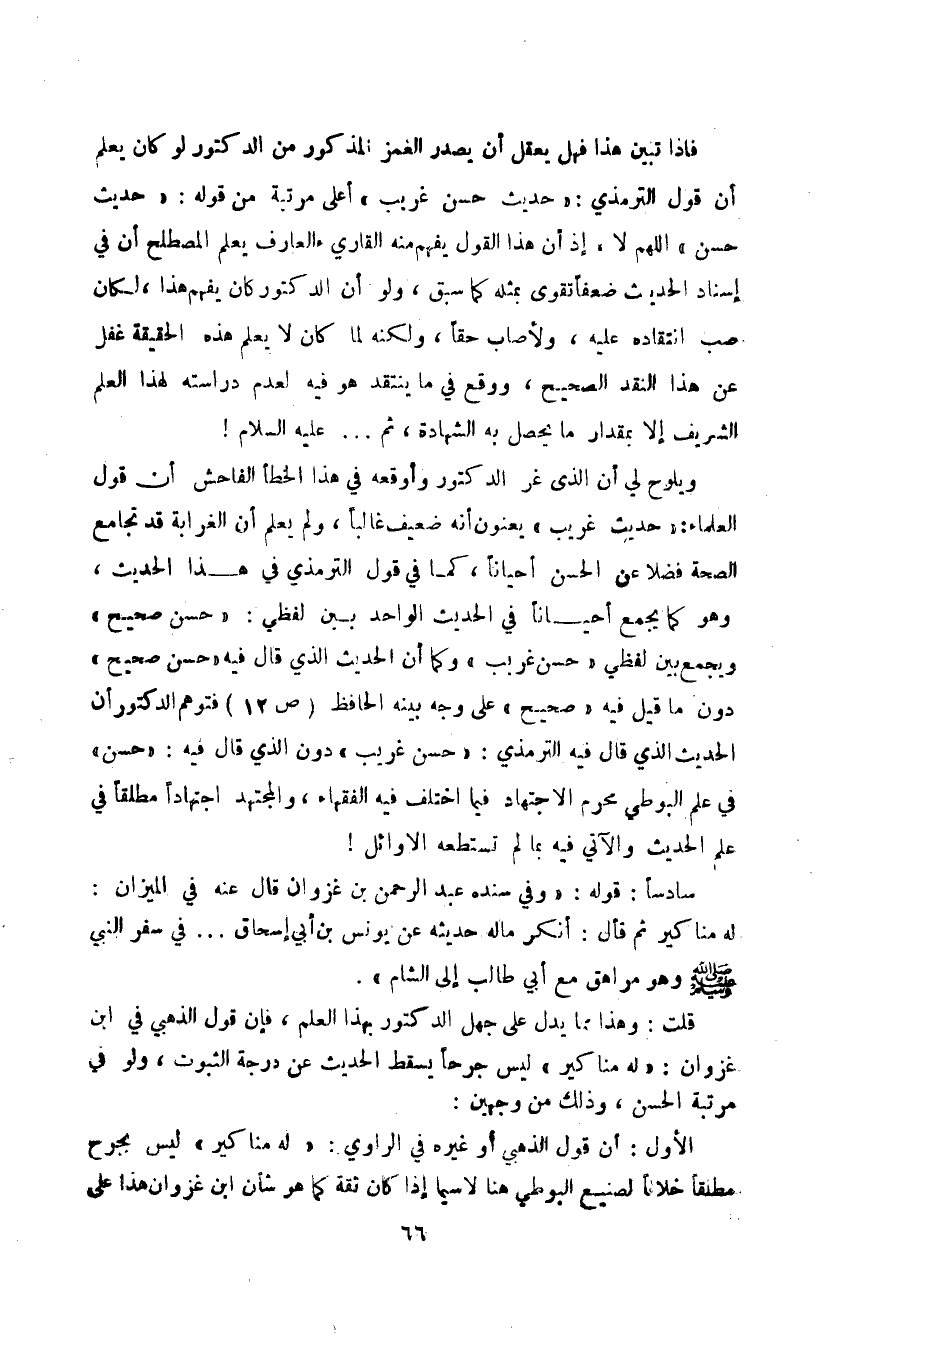 فاذا تبين هذا فهل يعقل أن يصدر الغمز المذكور من الدكتور لو كان يعلم
أن قول الترمذي : « حديث حسن غريب » أعلى مرتبة من قوله : « حديث
حسن » اللهم لا ، إذ أن هذا القول يفهم منه القارىء العارف بعلم المصطلح أن في
إسناد الحديث ضعفاً تقوى بمثله كما سبق ، ولو أن الدكتور كان يفهم هذا ، لكان
صب انتقاده عليه ، ولأصاب حقاً ، ولكنه لما كان لا يعلم هذه الحقيقة غفل
عن هذا النقد الصحيح ، ووقع في ما ينتقد هو فيه لعدم دراسته لهذا العلم
الشريف إلا بمقدار ما يحصل به الشهادة ، ثم ... عليه السلام !
ويلوح لي أن الذى غر الدكتور وأوقعه في هذا الخطأ الفاحش أن قول
العلماء : « حديث غريب » يعنون أنه ضعيف غالباً ، ولم يعلم أن الغرابة قد تجامع
الصحة فضلا عن الحسن أحياناً ، كما في قول الترمذي في هذا الحديث ،
وهو كما يجمع أحياناً في الحديث الواحد بين لفظي : « حسن صحيح »
ويجمع بين لفظي « حسن غريب » وكما أن الحديث الذي قال فيه « حسن صحيح »
دون ما قيل فيه « صحيح » على وجه بينه الحافظ ( ص ١٢ ) فتوهم الدكتور أن
الحديث الذي قال فيه الترمذي : « حسن غريب » دون الذي قال فيه : « حسن »
في علم البوطي محرم الاجتهاد فيما اختلف فيه الفقهاء ، والمجتهد اجتهاداً مطلقاً في
علم الحديث والآتي فيه بما لم تستطعه الاوائل !
سادساً : قوله : « وفي سنده عبد الرحمن بن غزوان قال عنه في الميزان :
له مناكير ثم قال : أنكر ماله حديثه عن يونس بن أبي إسحاق ... في سفر النبي
ﷺ وهو مراهق مع أبي طالب إلى الشام » .
قلت : وهذا مما يدل على جهل الدكتور بهذا العلم ، فإن قول الذهبي في ابن
غزوان : « له مناكير » ليس جرحاً يسقط الحديث عن درجة الثبوت ، ولو في
مرتبة الحسن ، وذلك من وجهين :
الأول : أن قول الذهبي أو غيره في الراوي : « له مناكير » ليس بجرح
مطلقاً خلافاً لصنيع البوطي هنا لاسيما إذا كان ثقة كما هو شأن ابن غزوان هذا على
٦٦